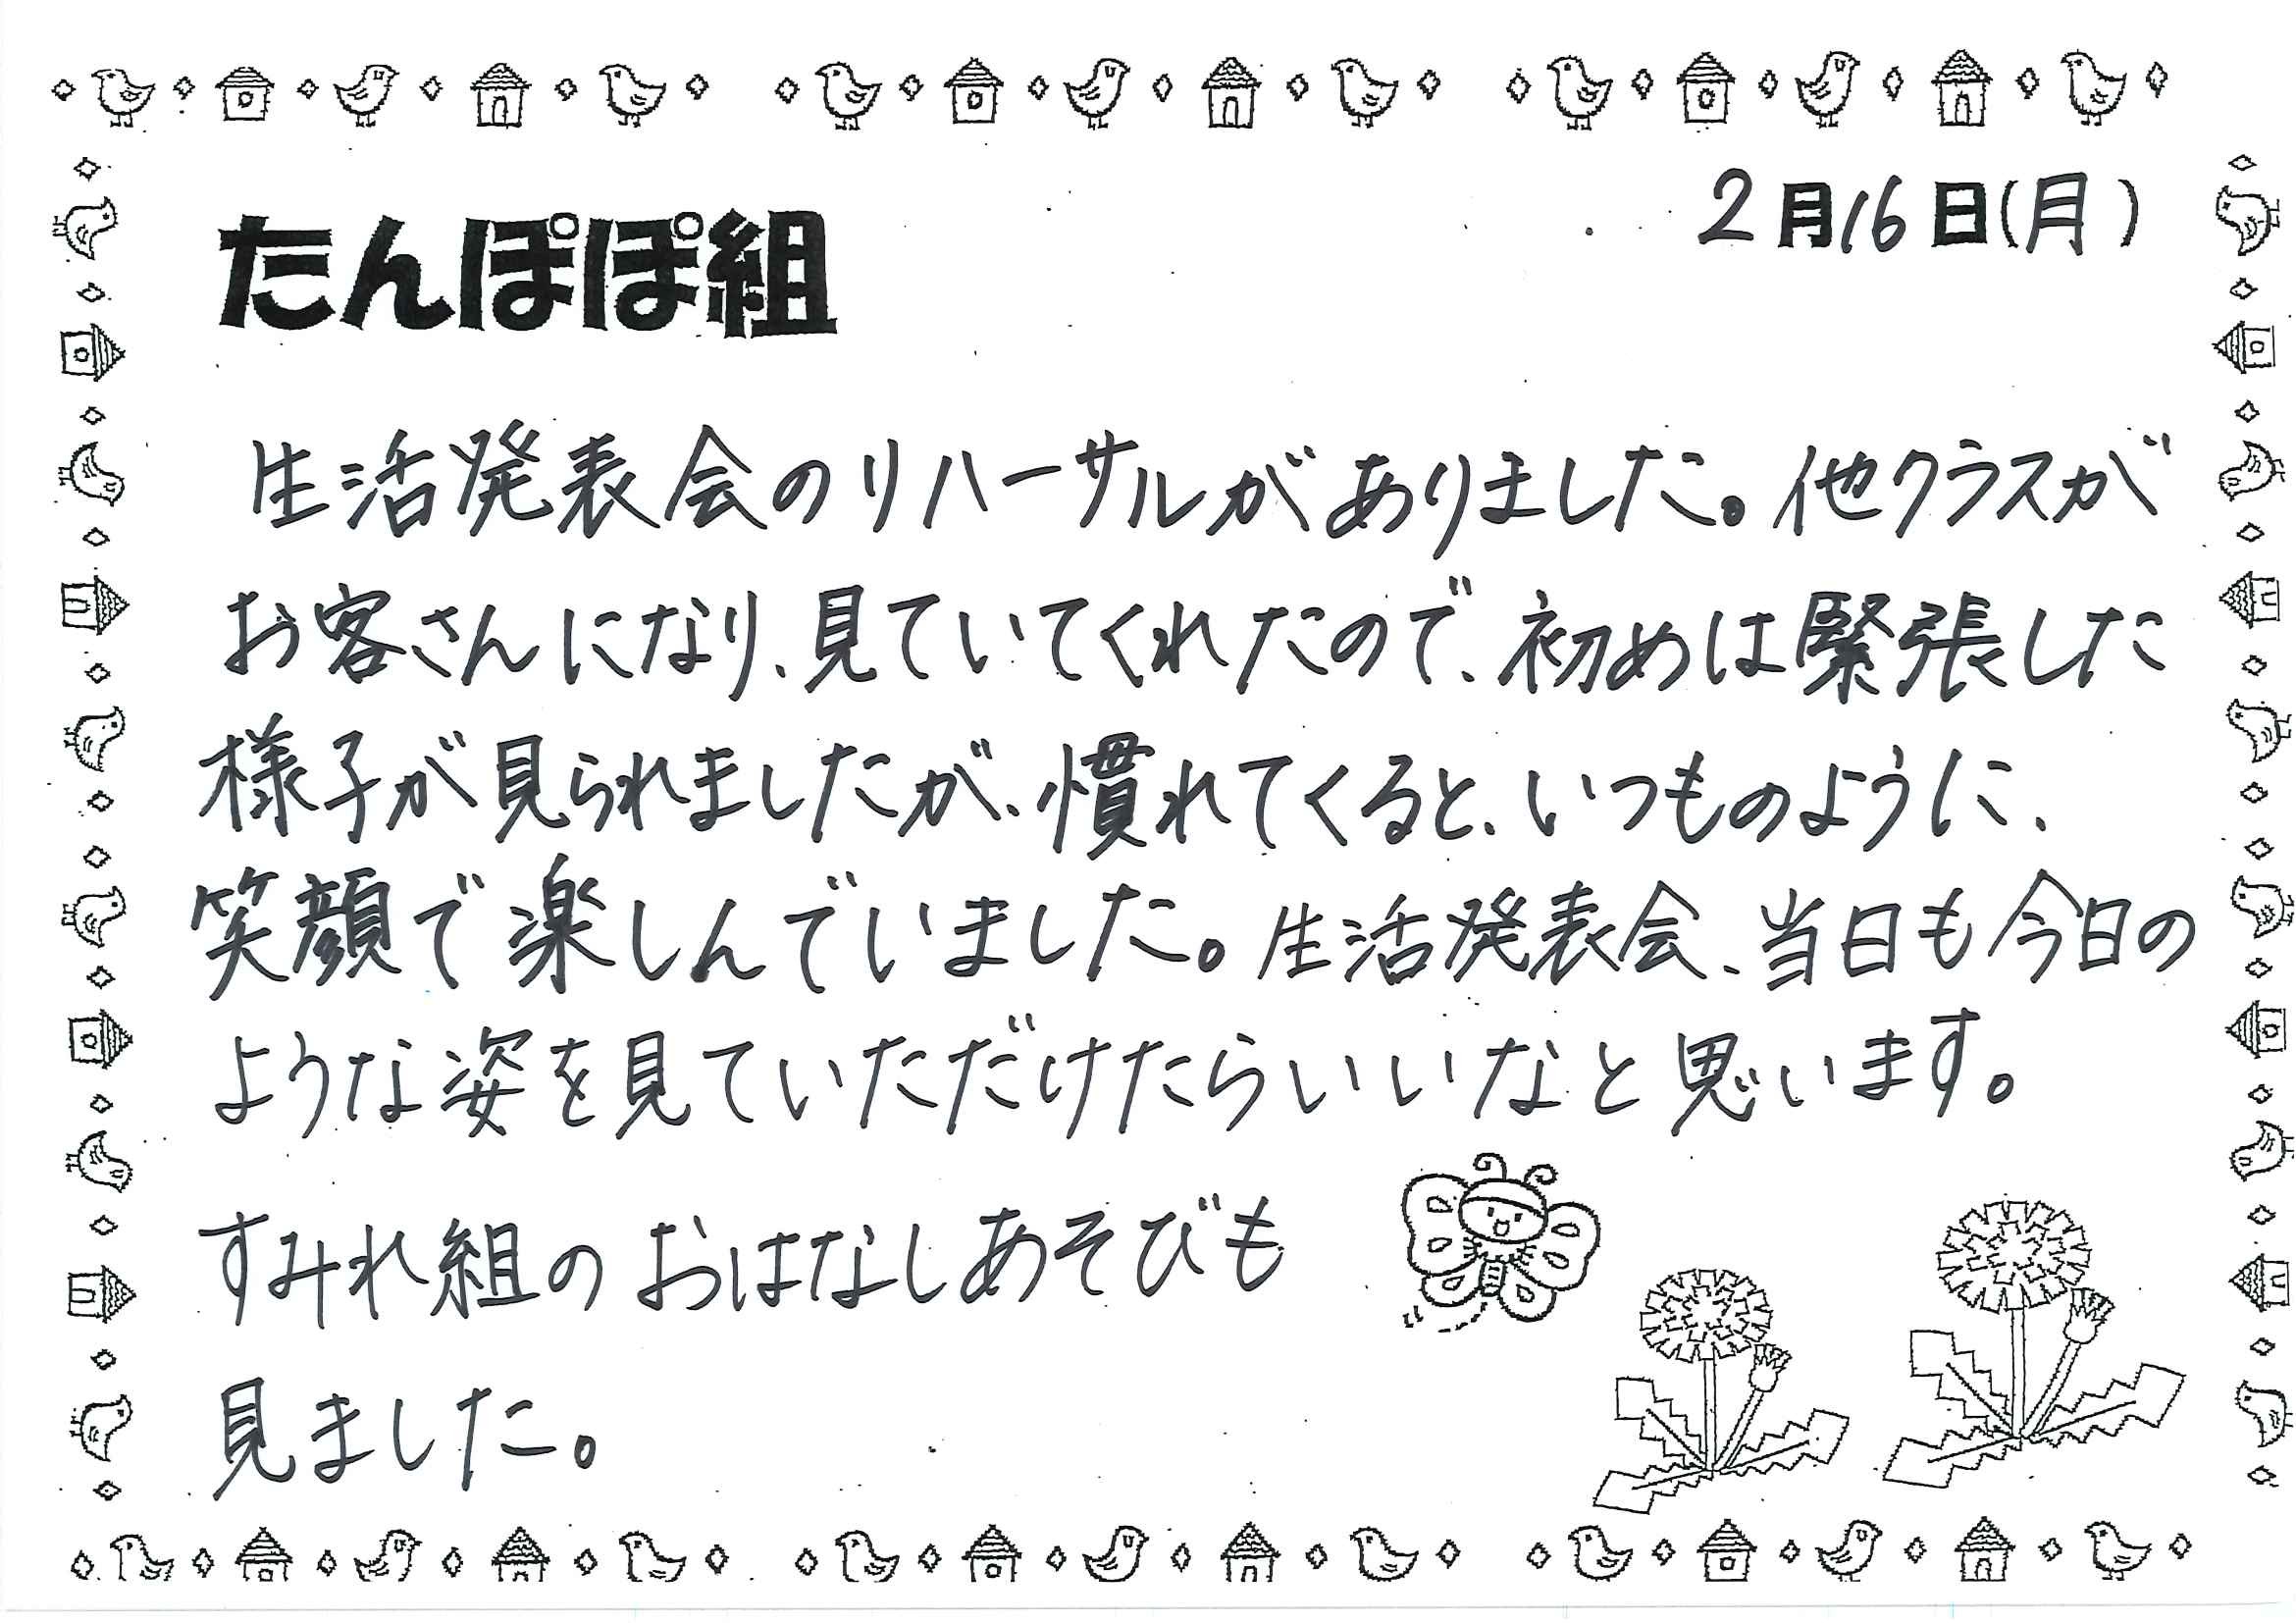 2月16日(月)
たんぽぽ組
生活発表会のリハーサルがありました。他クラスが
お客さんになり、見ていてくれたので、初めは緊張した
様子が見られましたが、慣れてくると、いつものように、
笑顔で楽しんでいました。生活発表会、当日も今日の
ような姿を見ていただけたらいいなと思います。
すみれ組のおはなしあそびも
見ました。